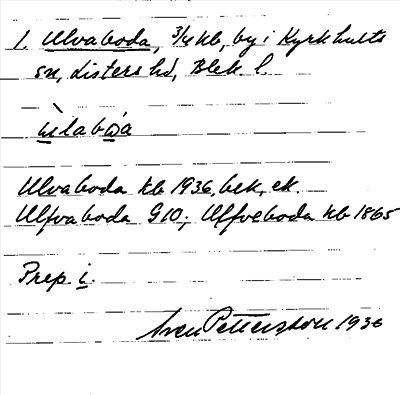 1. Ulvaboda, 3/4 kb, by i Kyrkhults
sn, Listers hd, Blek. l.
ùlaboa
Ulvaboda kb 1936, bek, ek.
Ulfvaboda G10; Ulfveboda kb 1865
Prep. i.
Sven Pettersson 1936